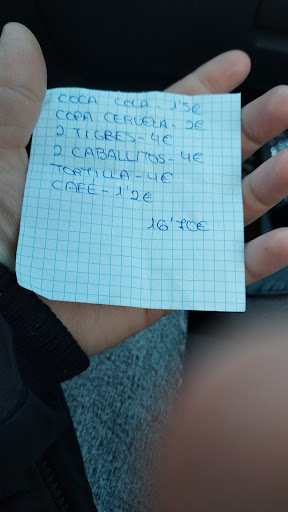 COCA COLA - 1'5€
COPA CERVEZA - 2€
2 TIGRES - 4€
2 CABALLITOS - 4€
TORTILLA - 4€
CAFE - 1'2€
16'70€